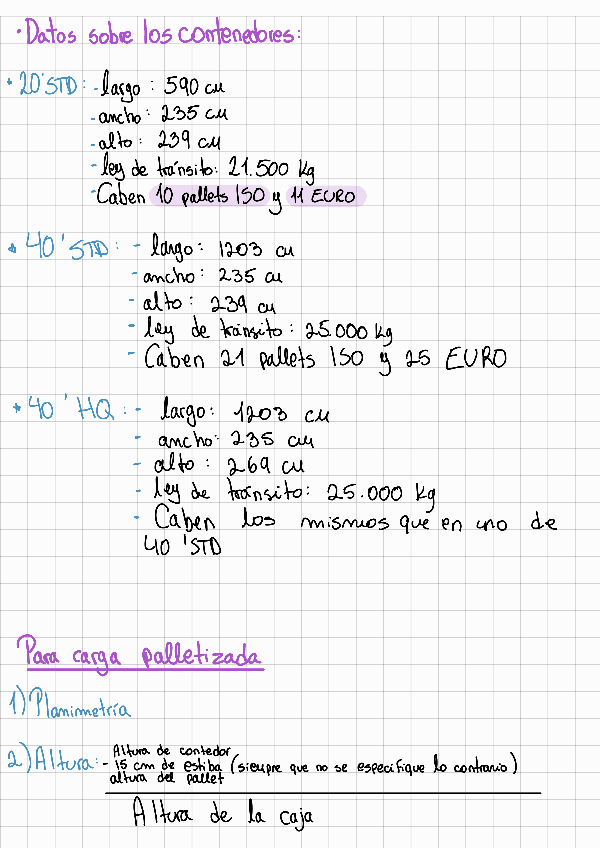 · Datos sobre los contenedores:
* 20'STD: - largo : 590 cm
- ancho : 235 cm
- alto : 239 cm
- ley de tránsito: 21.500 kg
- Caben 10 pallets ISO y 11 EURO
* 40'STD: - largo: 1203 cm
- ancho: 235 cm
- alto: 239 cm
- ley de tránsito: 25.000 kg
- Caben 21 pallets ISO y 25 EURO
* 40'HQ: - largo: 1203 cm
- ancho: 235 cm
- alto : 269 cm
- ley de tránsito: 25.000 kg
- Caben los mismos que en uno de
40'STD
Para carga palletizada
1) Planimetría
2) Altura: Altura de contedor
- 15 cm de estiba (siempre que no se especifique lo contrario)
altura del pallet
Altura de la caja